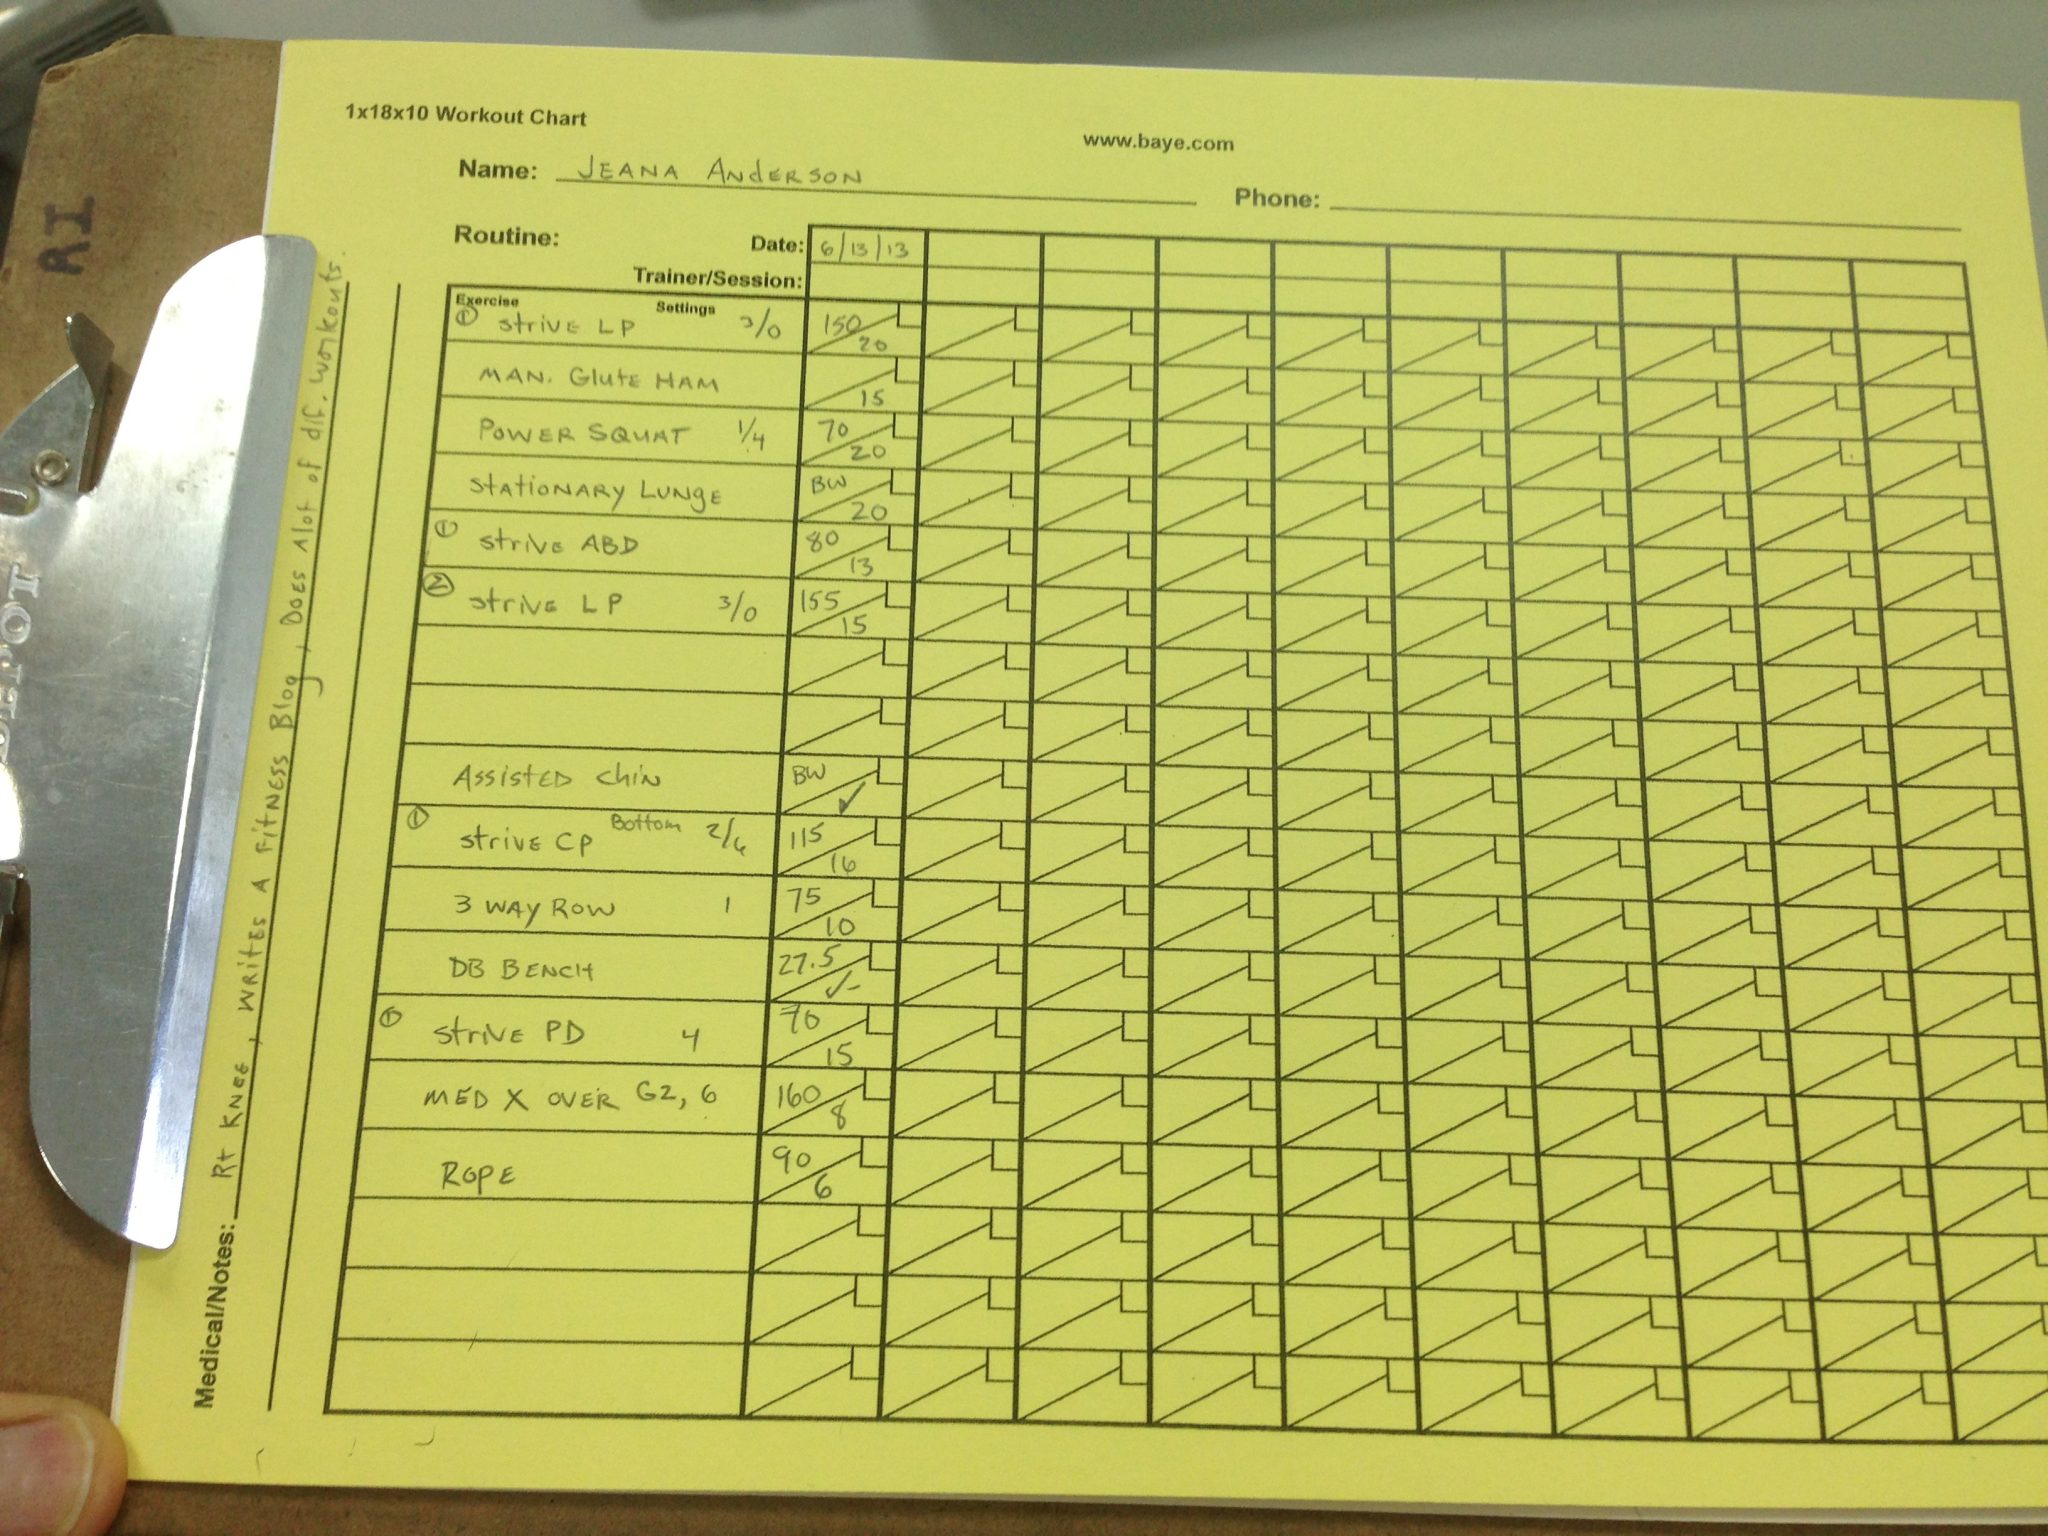 1x18x10 Workout Chart
www.baye.com
Name: JEANA ANDERSON
Phone:
Routine:
Date: 6/13/13
Trainer/Session:
Exercise Settings
① strive LP 3/0 150 20
MAN. Glute HAM 15
POWER SQUAT 1/4 70 20
STATIONARY LUNGE BW 20
① strive ABD 80 13
② strive LP 3/0 155 15
ASSISTED CHIN BW ✓
① strive CP Bottom 2/6 115 16
3 WAY ROW 1 75 10
DB BENCH 27.5 ✓-
① strive PD 4 70 15
MED X OVER G2, 6 160 8
ROPE 90 6
Medical/Notes: Rt KNEE, WRITES A FITNESS Blog, DOES Alot of dif. workouts.
AI